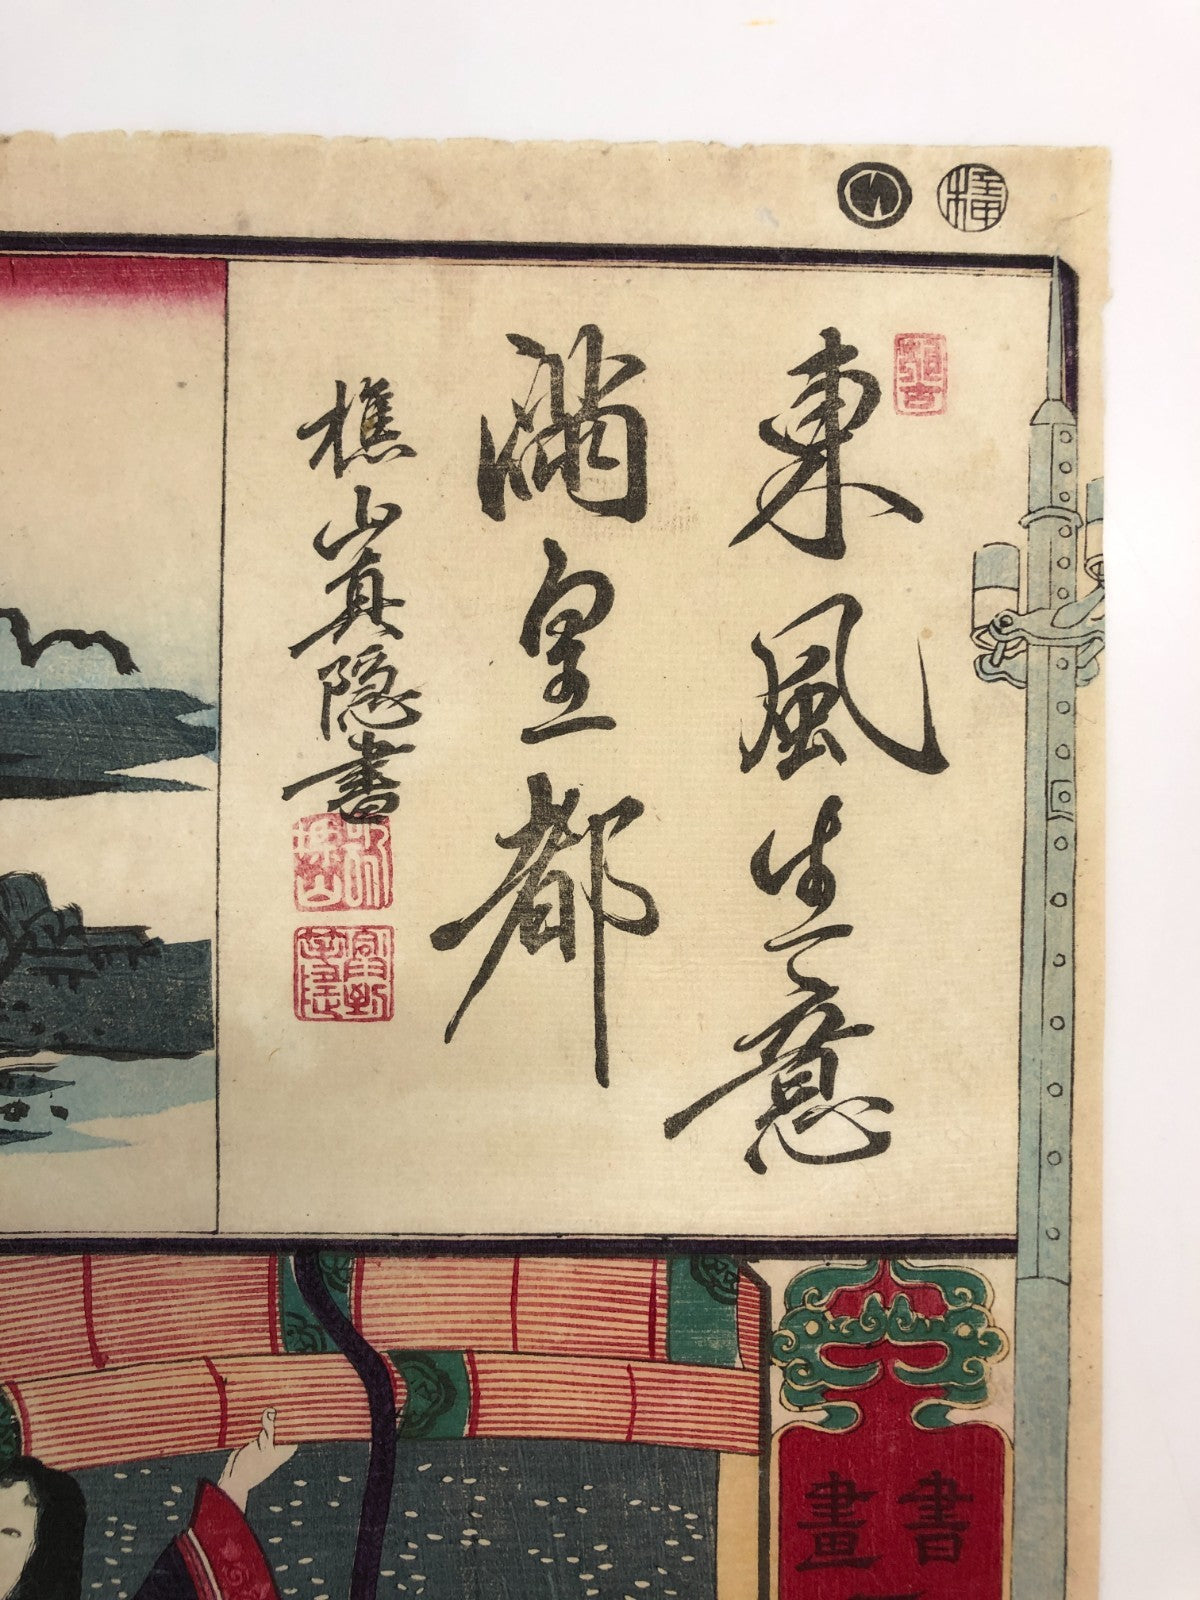 東風生意
満皇都
樵山真隠書
書
畫